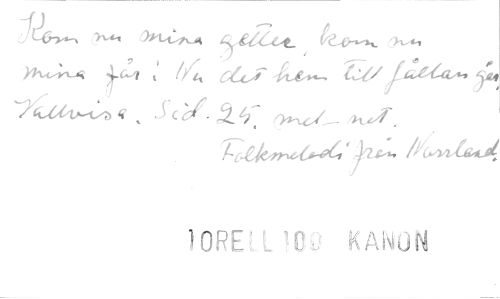 Kom nu mina getter, kom nu
mina får! Nu det hem till fållan går,
Vallvisa. Sid. 25. met-not.
Folkmelodi från Norrland.
TORELL 100 KANON